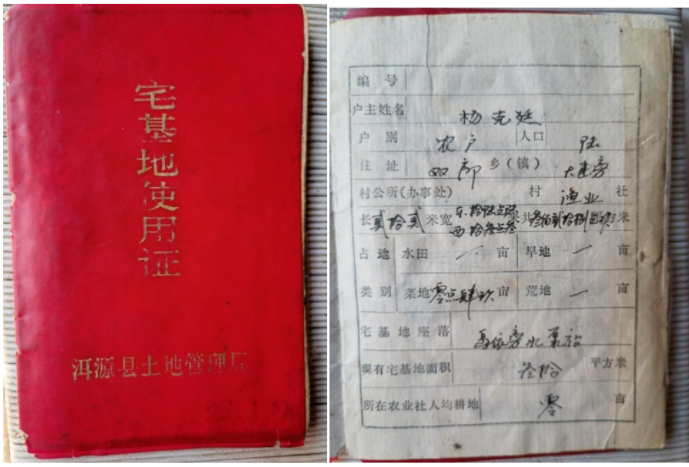 宅基地使用证
洱源县土地管理局
编号
户主姓名 杨克廷
户别 农户 人口 陆
住址 双廊乡(镇) 大建旁
村公所(办事处) 村 渔业 社
长贰拾贰米宽 东拾陆点 西拾叁点叁 米共叁佰贰拾捌 米
占地 水田 一 亩 旱地 一 亩
类别 菜地 零点肆玖 亩 荒地 一 亩
宅基地座落
现有宅基地面积 叁拾 平方米
所在农业社人均耕地 零 亩